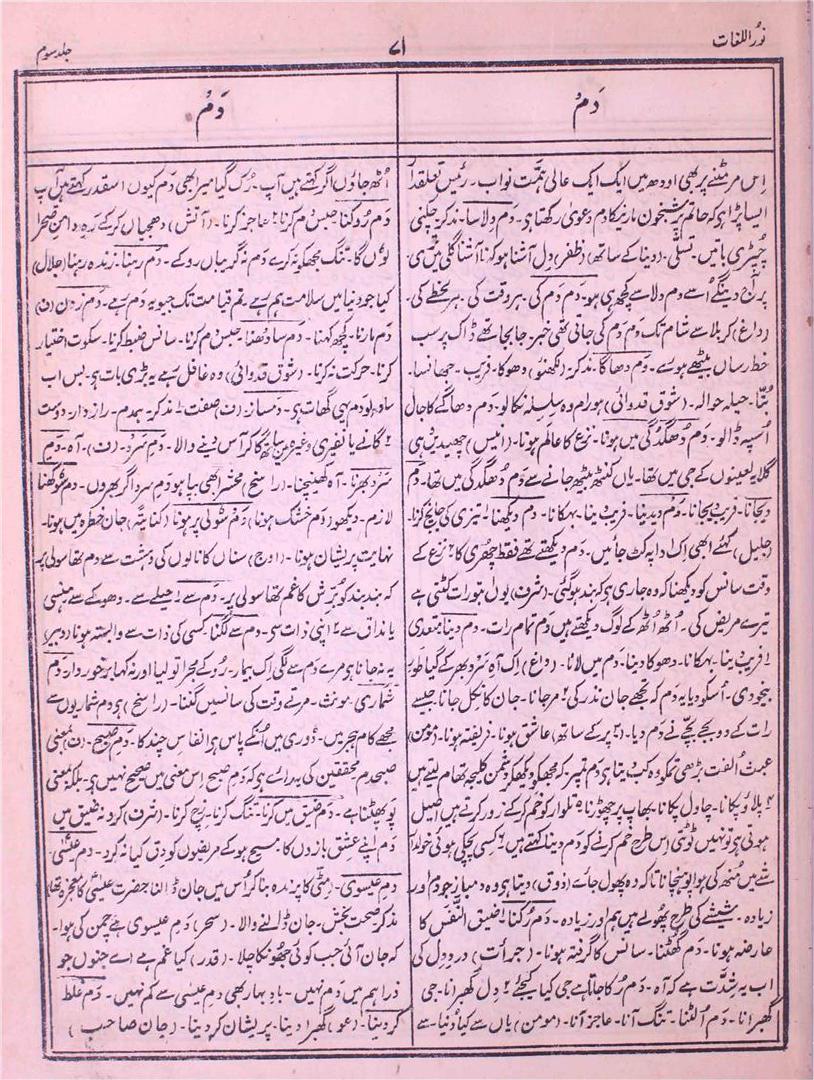 نورُ اللغات
۷۱
جلد سوم
دَمْ
دَمْ
اِس مرمٹنے پر بھی اودھ میں ایک ایک عالی ہمّت نواب۔ رئیس تعلقدار
ایسا پڑا ہو کہ حاتم پر شبخون مارنیکا دم دعویٰ رکھتا ہی۔ دم دِلاسا۔ مذکر چکنی
چُپڑی باتیں۔ تسلّی۔ (دینا کے ساتھ) (ظفر) دِل آشنا ہو کہ نا آشنا گلی میں ہی
پر آج دینگے اُسے دم دلاسے کچھ ہی ہو۔ دم دم کی۔ ہر وقت کی۔ ہر لحظے کی۔
(داغ) کربلا سے شام تک دم دم کی جاتی تھی خبر۔ جا بجا تھے ڈاک پر سب
خط رساں بیٹھے ہوئے۔ دم دھاگا۔ مذکر۔ (لکھنؤ) دھوکا۔ فریب۔ جھانسا۔
بُتّا۔ حیلہ حوالہ۔ (شوق قدوائی) دم وہ سِلسِلہ نکالو۔ دم دھاگے کا حال
اُسپہ ڈالو۔ دم دُھگدُگی میں ہونا۔ نزع کا عالم ہونا۔ (انیس) چھیدیں ہی
گلا یہ لعینوں کے جی میں تھا۔ یاں کنٹھ بیٹھ جانے سے دم دُھگدگی میں تھا۔ دم
دیجانا۔ فریب دیجانا۔ دم دیدینا۔ فریب دینا۔ بہکانا۔ دم دیکھنا۔ تیزی کی جانچ کرنا۔
(جلیل) گلے ابھی اِک ادا پہ کٹ جائیں۔ دم دیکھتے تھے فقط چُھری کا ۲ نزع کے
وقت سانس کو دیکھنا کہ وہ جاری ہو کہ بند ہو گئی۔ (شرف) یوں تو رات کٹتی ہے
تیرے مریض کی۔ اُٹھ اُٹھ کے لوگ دیکھتے ہیں دَم تمام رات۔ دم دینا متعدی
۱ فریب دینا۔ بہکانا۔ دھوکا دینا۔ دم میں لانا۔ (داغ) اِک آہِ سرد بھر کے گیا طور
بیخودی۔ اُسکو دیا یہ دم کہ تجھے جان نذر کی ۲ مرجانا۔ جان کا نکل جانا۔ جیسے
رات کے دو بجے بچّے نے دم دیا۔ (۳ پر کے ساتھ) عاشق ہونا۔ فریفتہ ہونا۔ (مومن)
عبث اُلفت بڑھی تمکو وہ کب دیتا ہی دم تمپر۔ کہ مجھکو دیکھکر دشمن کلیجہ تھام لیتے ہیں
۴ پلاؤ پکانا۔ چاول پکانا۔ بھاپ پر چھوڑنا ۵ تلوار کو خم کر کے زور کرتے ہیں اصیل
ہوتی ہی تو نہیں ٹوٹتی اِس طرح خم کرنے کو دم دینا کہتے ہیں ۶ کسی پچکی ہوئی خولدار
شے میں مُنھ کی ہوا پہونچانا تاکہ وہ پھول جائے (ذوق) دیتا ہی وہ دمباز جو دم اور
زیادہ۔ شیشے کی طرح پھولے ہیں ہم اور زیادہ۔ دم رُکنا۔ ضیق النَّفَس کا
عارضہ ہونا۔ دم گُھٹنا۔ سانس کا گرفتہ ہونا۔ (جرأت) دردِ دل کی
اب یہ شدّت ہے کہ آہ۔ دم رُکا جاتا ہے جی کیا کیجئے ۲ دل گھبرانا۔ جی
گھبرانا۔ دم اُلٹنا۔ تنگ آنا۔ عاجز آنا۔ (مومن) یاں سے کیا دُنیا سے
اُٹھ جاؤں اگر رُکتے ہیں آپ۔ رُک گیا میرا بھی دَم کیوں اسقدر رکتے ہیں آپ
دَم رُوکنا۔ حبسِ دم کرنا ۲ عاجز کرنا۔ (آتش) دھجیاں کر کے رہِ دامنِ صحرا
لوں گا۔ تنگ مجھکو نہ کرے دَم نہ گریباں روکے۔ دَم رہنا۔ زندہ رہنا (جلال)
کیا جو دنیا میں سلامت ہم رہے۔ تم قیامت تک جیو یہ دم رہے۔ دَم زدن (ف)
دَم مارنا۔ کچھ کہنا۔ دم سادھنا۔ حبسِ دم کرنا۔ سانس ضبط کرنا۔ سکوت اختیار
کرنا۔ حرکت نہ کرنا۔ (شوق قدوائی) وہ غافل ہے یہ بڑی بات ہی۔ بس اب
سادھ لو دم یہی گھات ہی۔ دمساز۔ (ف) صفت ۱ مذکر۔ ہمدم۔ رازدار۔ دوست
۲ گانے یا نفیری وغیرہ میں ساتھ کا کر آس دینے والا۔ دَمِ سَرد۔ (ف)۔ آہ۔ دَم
سَرد بھرنا۔ آہ کھینچنا۔ (راسخ) محشر ابھی بپا ہو دمِ سرد اگر بھروں۔ دم سُوکھنا
لازم۔ دیکھو (دَم خشک ہونا) دَم سُولی پر ہونا (کنایۃً) جان خطرہ میں ہونا۔
نہایت پریشان ہونا۔ (اوج) سناں کا نالوں کی دہشت سے دم تھا سولی پر
کہ بند بند کو بُرش کا غم تھا سولی پر۔ دَم سے ۱ حیلے سے۔ دھوکے سے ہنسی
یا مذاق سے ۲ اپنی ذات سے۔ دم سے لگنا۔ کسی کی ذات سے وابستہ ہونا (دبیر)
یہ نہ جانا ہی مرے دَم سے لگی اِک بیمار۔ رُو کے مجرا تو لیا اور نہ کہا برخوردار۔ دَم
شماری۔ مونث۔ مرتے وقت کی سانسیں گننا۔ (راسخ) ہی دم شماریوں سے
مجھے کام ہجر میں۔ دَوری میں اُنکے پاس ہی انفاسِ چند کا۔ دَمِ صبح۔ (ف) بمعنی
صبحدم محققین کی یہ رائے ہی کہ دمِ صبح اِس معنی میں صحیح نہیں ہی۔ بلکہ بمعنی
پَو پھٹنا ہے۔ دم ضیق میں کرنا۔ تنگ کرنا۔ زچ کرنا۔ (شرف) کر دو نہ ضیق میں
دَم اپنے عشق بازوں کا۔ مسیح ہو کے مریضوں کو دِق کیا نہ کرو۔ دمِ عیسیٰ۔
دمِ عیسوی۔ (مٹّی کا پرندہ بنا کر اُس میں جان ڈالنا حضرت عیسیٰ کا معجزہ تھا)
مذکر صحت بخش۔ جان ڈالنے والا۔ (سحر) دَمِ عیسوی ہے چمن کی ہوا۔
کہ جان آئی جب کوئی جھونکا چلا۔ (قدر) کیا غم ہے اے جنوں جو
ذرا ہم میں دَم نہیں۔ بادِ بہار بھی دمِ عیسیٰ سے کم نہیں۔ دَم غلط
کر دینا۔ (عو) گھبرا دینا۔ پریشان کر دینا۔ (جان صاحب)